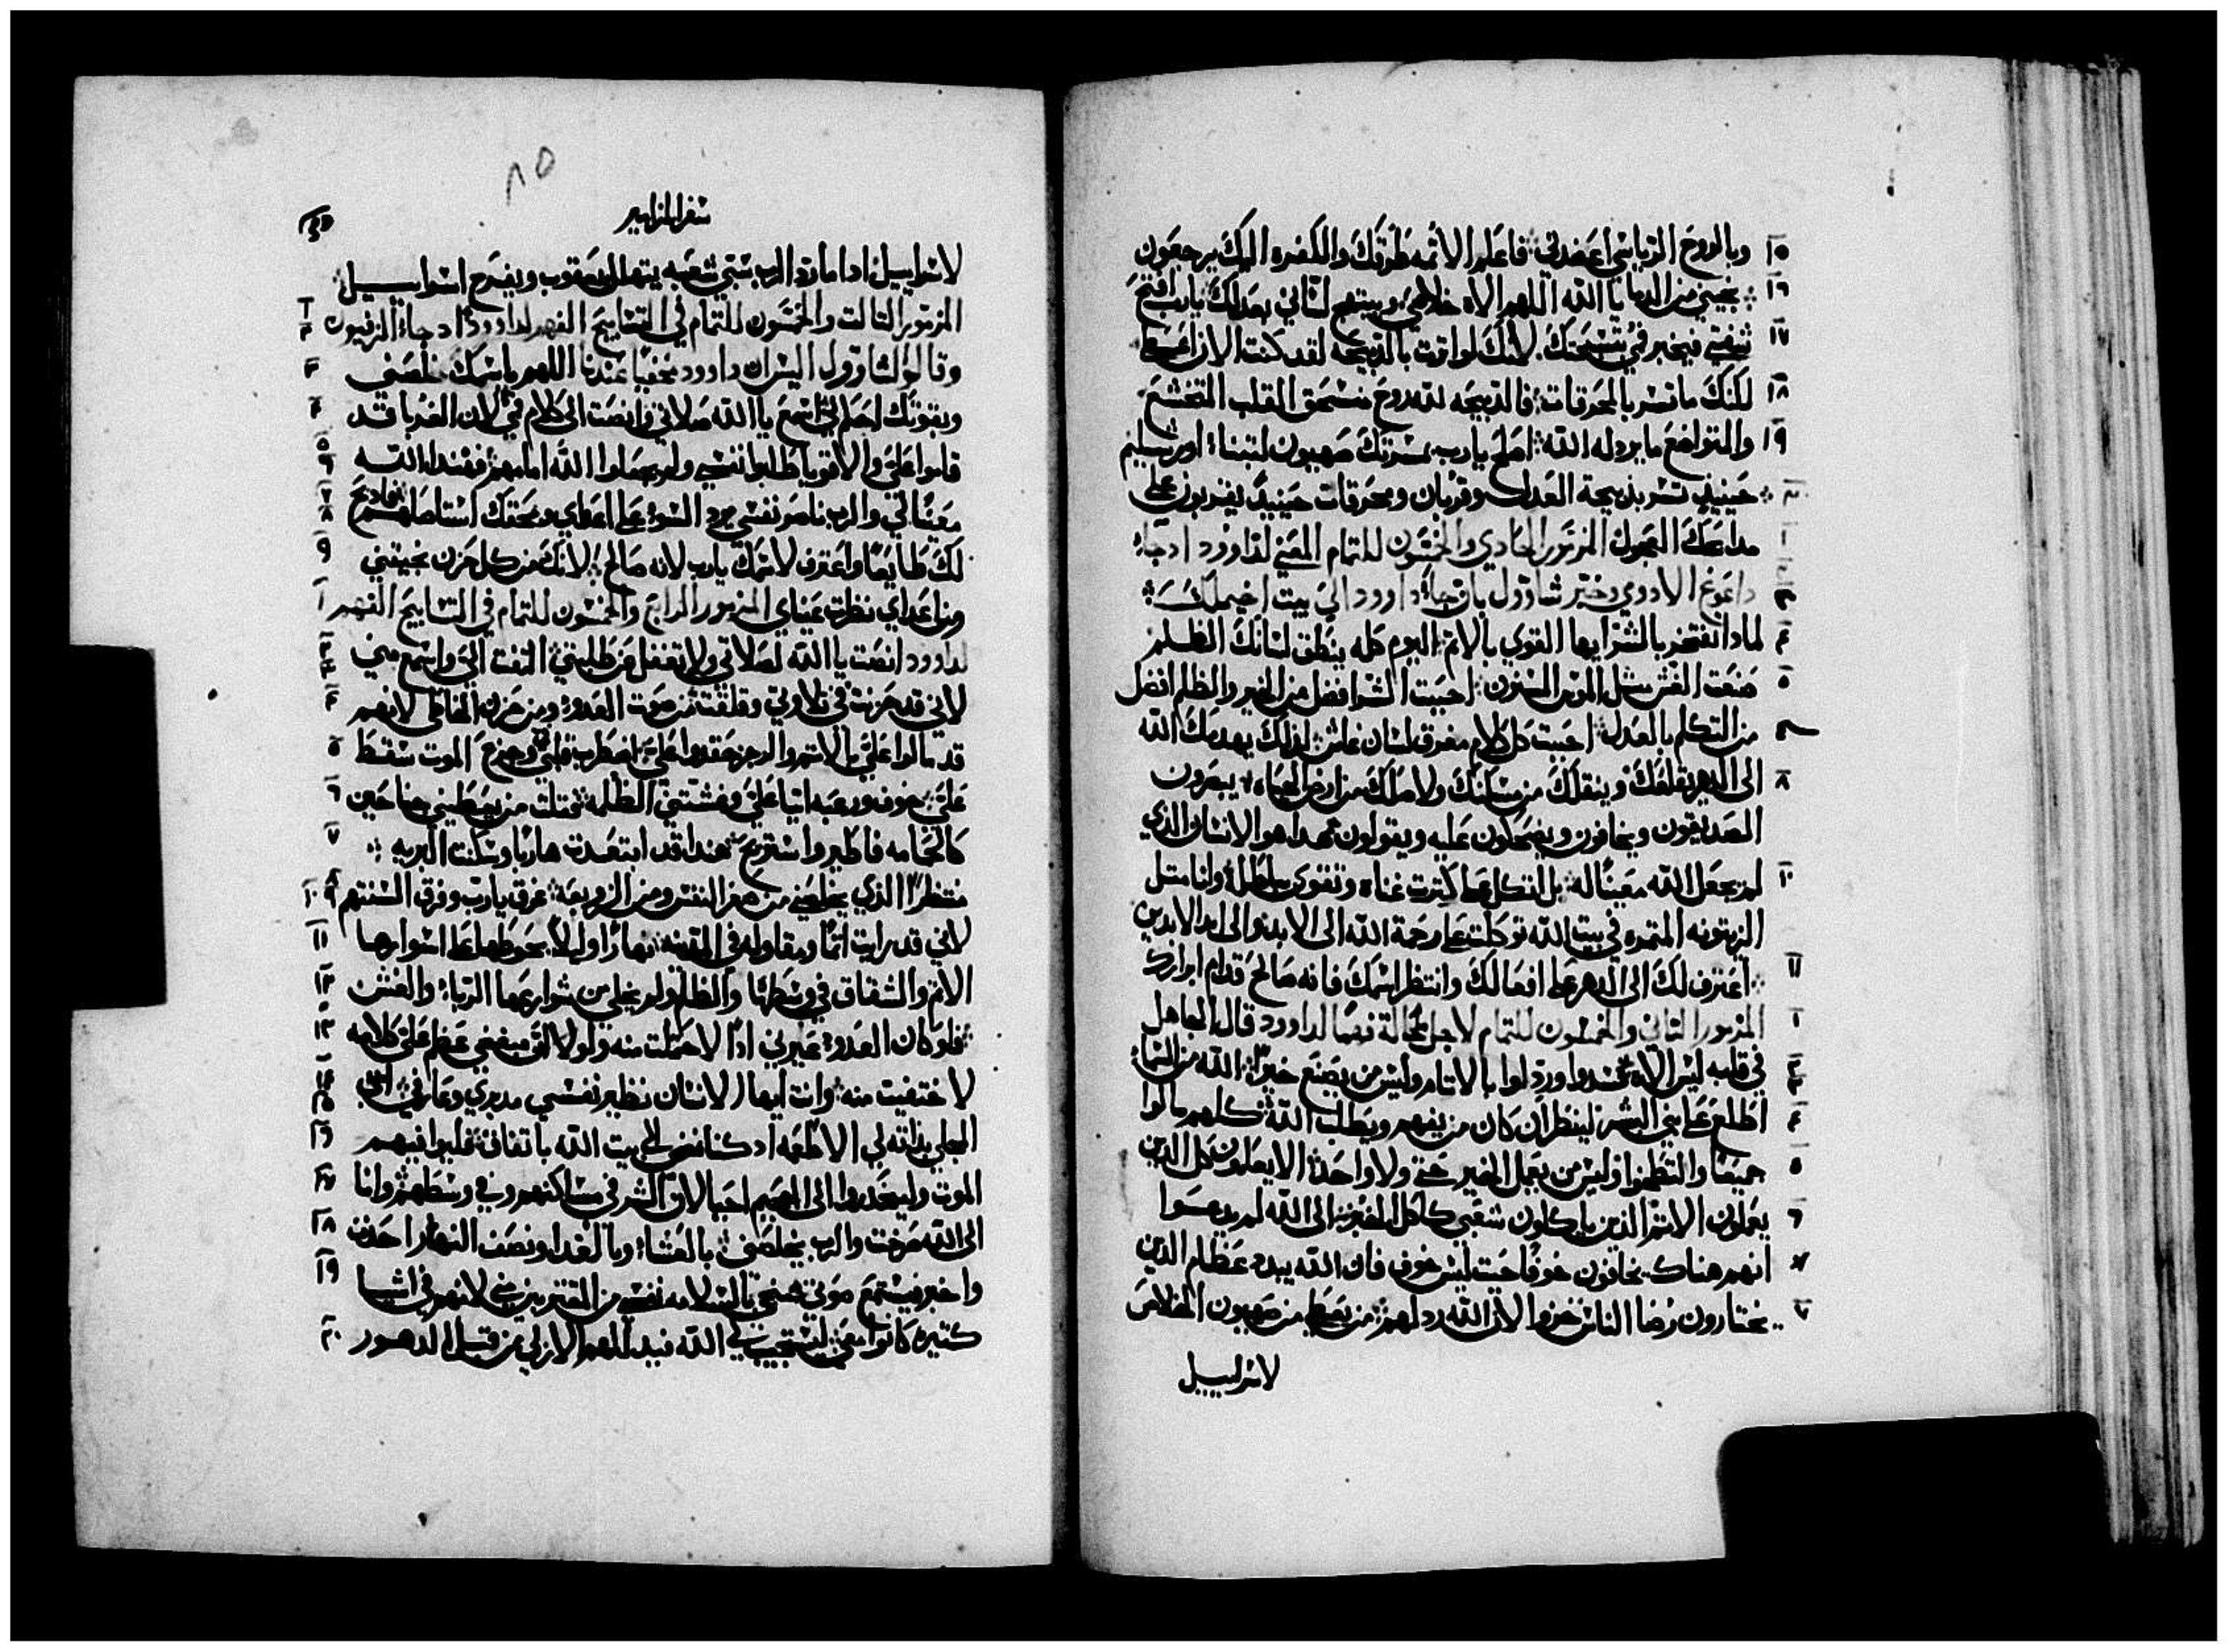 ١٥ وبالروح الرياسي اعضدني فاعلم الاثمه طرقك والكفره اليك يرجعون
١٦ نجيني من الدما يا الله اللهم الاه خلاصي ويبتهج لساني بعدلك يارب افتح
١٧ شفتي فيخبر في تسبحتك لانك لو اثرت بالذبيحه لقد كنت الان اعطي
١٨ لكنك ما تسر بالمحرقات فالذبيحه لله روح منسحق القلب المتخشع
١٩ والمتواضع ما يرذله الله اصلح يارب بمسرتك صهيون لتبنا اورشليم
٢٠ حينيذ تسر بذبيحة العدل وقربان ومحرقات حينيذ يقربون على
١ مدابحك العجول المزمور الحادي والخمسون للتمام المعني لداوود اد جاء
٢ داغوغ الادومي وخبر شاوول بان جاء داوود الى بيت اخيملك
٤ لمادا تفتخر بالشر ايها القوي بالاثم اليوم كله ينطق لسانك الظلم
٥ صنعت الغش مثل الموس المسنون احببت الشر افضل من الخير والظلم افضل
من التكلم بالعدل احببت كل كلام مغرق لسان غاش لذلك يهدمك الله
٨ الى الدهر يقلعك وينقلك من مسكنك ولاصلك من ارض الحياه يبصرون
الصديقون ويخافون ويضحكون عليه ويقولون هدا هو الانسان الذي
١٠ لم يجعل الله معينًا له بل اتكل على كثرت غناه وتقوى بباطله وانا مثل
الزيتونه المثمره في بيت الله توكلت على رحمة الله الى الابد والى ابد الابدين
١١ اعترف لك الى الدهر على افعالك وانتظر اسمك فانه صالح قدام ابرارك
١ المزمور الثاني والخمسون للتمام لاجل محالة فهمًا لداوود قال الجاهل
في قلبه ليس الاه فسدوا ورذلوا بالاثام وليس من يصنع خيرًا الله من السما
٤ اطلع على بني البشر لينظر ان كان من يفهم ويطلب الله كلهم مالوا
٥ جميعًا والتطخوا فليس من يعمل الخير حتى ولا واحد الا يعلمون كل الدين
٦ يعملون الاثم الذين ياكلون شعبي كاكل الخبز الى الله لم يدعوا
انهم هناك يخافون خوفًا حيث ليس خوف فان الله يبدد عظام الذين
٧ يختارون رضا الناس خزوا لان الله ردلهم من يعطي من صهيون الخلاص
لاسراييل
٨٥
سفر المزامير
لاسراييل ادا ما رد الرب سبي شعبه يتهلل يعقوب ويفرح اسراييل
المزمور التالت والخمسون للتمام في التسابيح الفهم لداوود اد جاء الزيفيون
وقالوا لشاوول اليس ان داوود مختبيًا عندنا اللهم باسمك خلصني ٣
وبقوتك احكم لي اسمع يا الله صلاتي وانصت الى كلام في لان الغربا قد ٤
قاموا علي والاقويا طلبوا نفسي ولم يجعلوا الله امامهم فهندا الله
معينًا لي والرب ناصر نفسي يرد السوء على اعداي وبحقك استاصلهم فادبح
لك طايعًا واعترف لاسمك يارب لانه صالح لانك من كل حزن نجيتني ٩
وفي اعداي نظرت عيناي المزمور الرابع والخمسون للتمام في التسابيح الفهم ١
لداوود انصت يا الله لصلاتي ولا تغفل عن طلبتي التفت الي واسمع مني
لاني قد حزنت في تلاوتي وقلقت من صوت العدو ومن حزن الخاطي لانهم ٤
قد مالوا علي بالاثم والرجز حقدوا علي اضطرب قلبي في وجزع الموت سقط ٥
علي خوف ورعبه اتيا علي وغشتني الظلمه فقلت من يعطيني جناحين ٦
كالحمامه فاطير واستريح هندا قد ابتعدت هاربًا وسكنت البريه ٧
منتظرًا الذي يخلصني من صغر النفس ومن الزوبعه غرق يارب وفرق السنتهم
لاني قد رايت اثمًا ومقاوله في المدينه نهارًا وليلاً يحوطها على اسوارها ١١
الاثم والشقاق في وسطها والظلم ولم يخلى من شوارعها الربا والغش ١٢
فلو كان العدو عيرني ادًا لاحتملت منه ولو لا ان مبغضي عظم علي كلامه ١٣
لاختفيت منه وانت ايها الانسان نظير نفسي مدبري وعارفي
المحلي بذاته لي الاطعمه اد كنا نمضي الى بيت الله باتفاق فليوافيهم ١٦
الموت ولينحدروا الى الجحيم احيا لان الشر في مساكنهم وفي وسطهم وانا ١٧
الى الله صرخت والرب يخلصني بالعشاء وبالغدا ونصف النهار احدث ١٨
واخبر فيستمع صوتي ينجي بالسلامه نفسي من المقتربين مني لانهم في اشيا ١٩
كثيره كانوا معي ليستجيب لي الله فيدلهم الازلي من قبل الدهور ٢٠